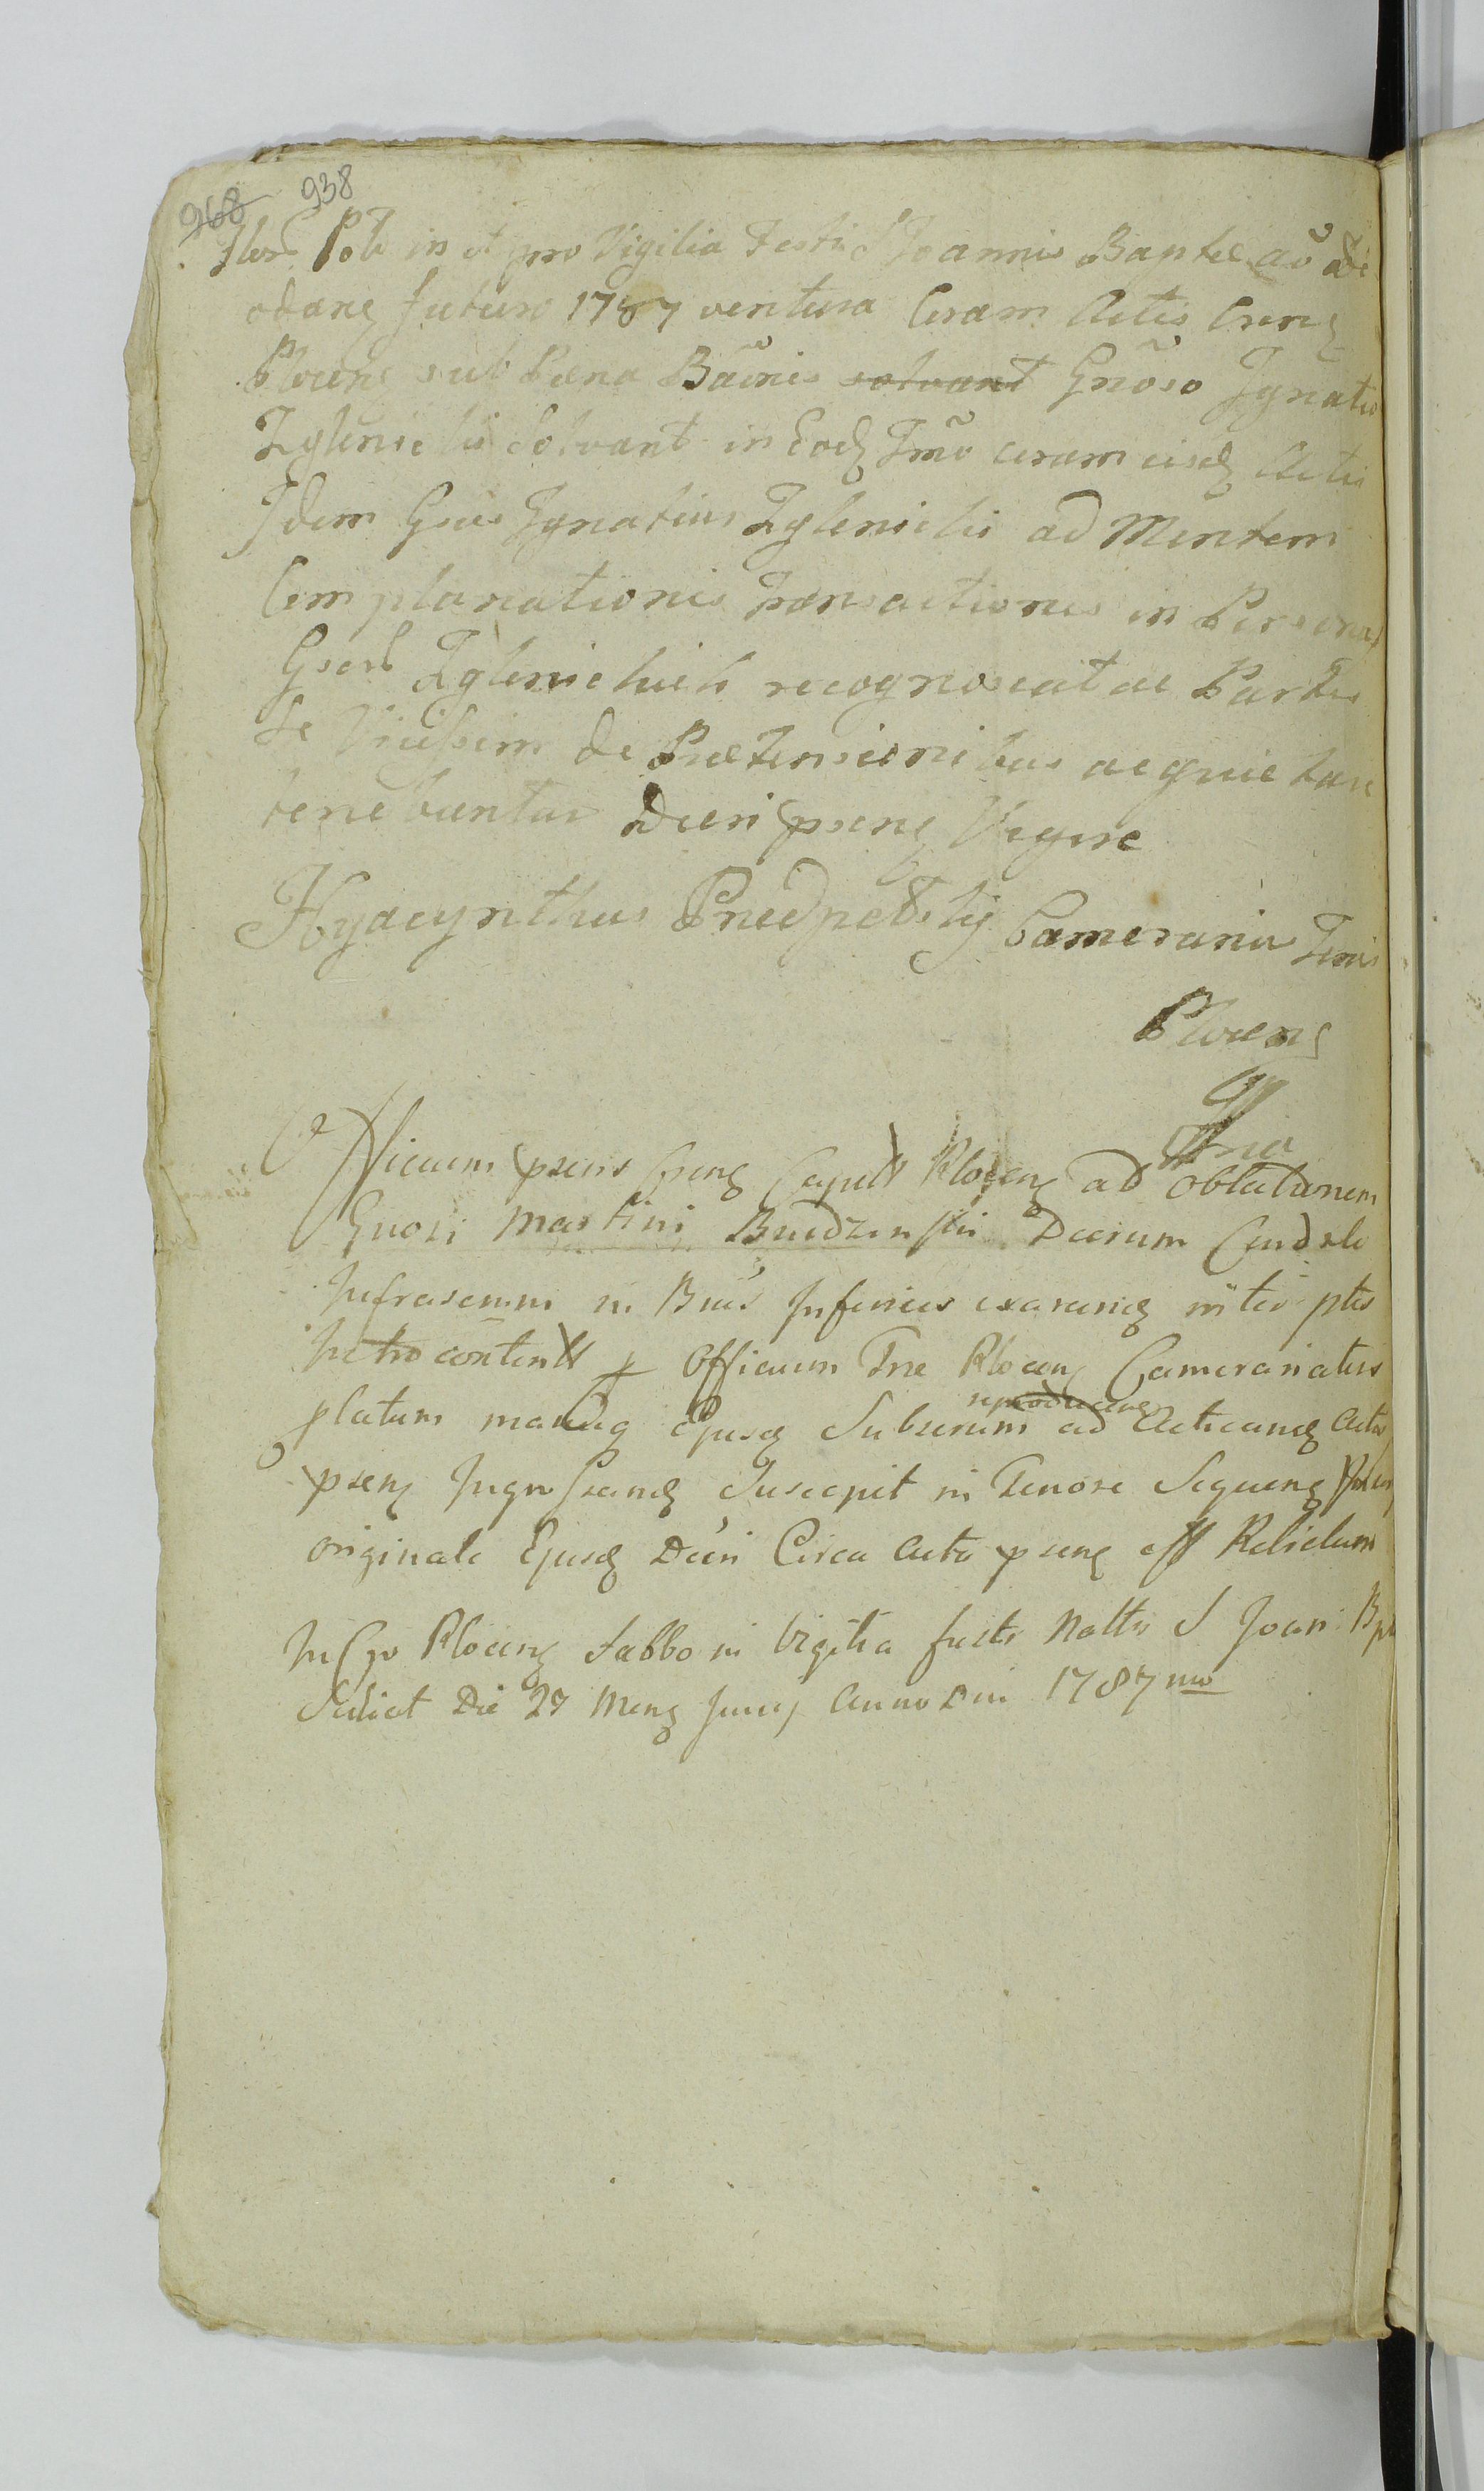 968 938
Flor Pol in et pro Vigilia Festi S Joannis Baptæ
futuro 1787 ventura Coram Actis Cren
Plocen sub Pæna Bãnis solvant Gnõso Ignatio
Zglenicki Solvant in Eod Tmõ coram eisd Actis
Idem Gsus Ignatius Zglenicki ad Mentem
Complanationis Transactionis in Personas
Gsor Zglenickich recognoscat ac Partes
Se Vicissim de Prætensionibus acquietare
tenebuntur Decri psens Vigore
Hyacynthus Camerarius Trris
Plocens
Officium psens Crens Capit Plocens ad oblatam
Gnosi Martini Budzinski Decrum Condele
Infrascrum in Bnis Inferius exarand inter ptes
Intro content p Officium Trræ Plocen Cameratus
platum manuq Ejusd Subscrum reproducens ad Acticand Actis
psens Ingrossand Suscepit in Tenore Sequens
originale Ejusd Decri Circa Acta psens est Relictum
In Cro Plocens Sabbo in Vigilia festi Nattis S Joan Bpt
Scilicet Die 23 Mens Junij Anno Dni 1787mo